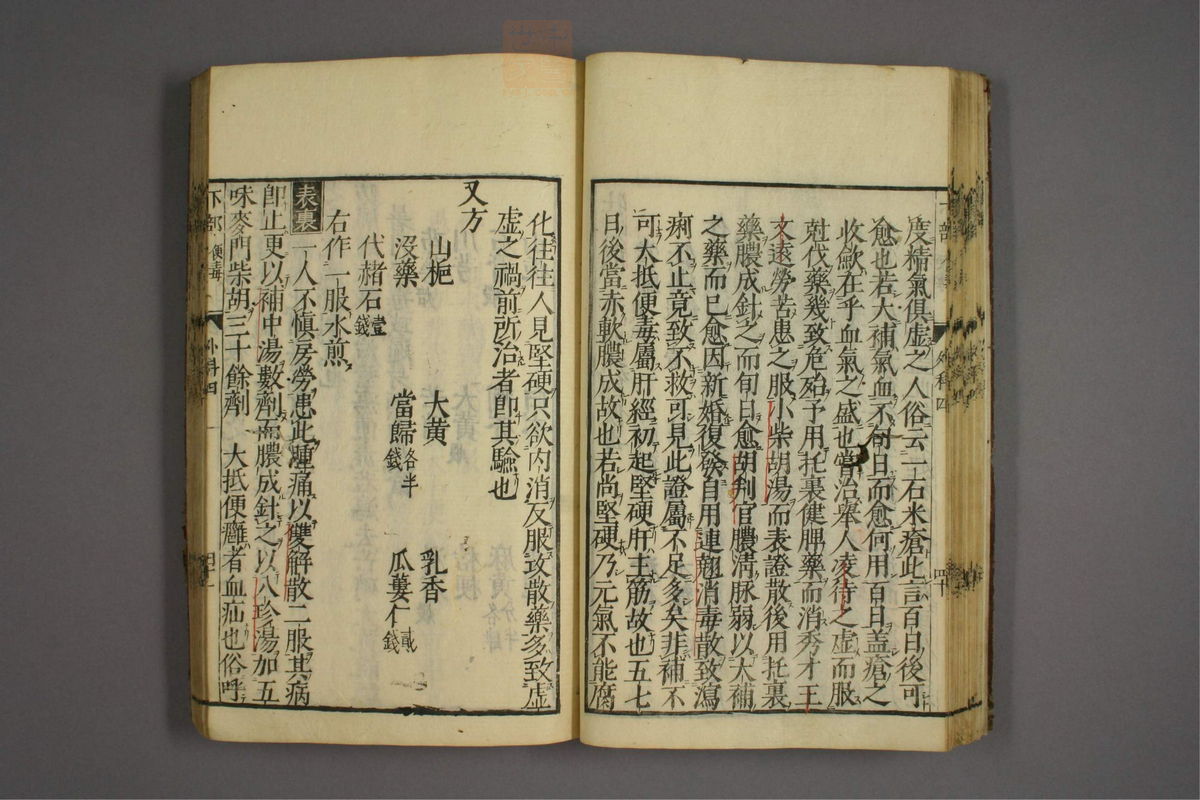 度精氣俱虛之人俗云一石米瘡此言百日後可
愈也若大補氣血不旬日而愈何用百日蓋瘡之
收斂在乎血氣之盛也嘗治舉人凌待之虛而服
尅伐藥幾致危殆予用托裏健脾藥而消秀才王
文遠勞苦患之服小柴胡湯而表證散後用托裏
藥膿成針之而旬日愈胡判官膿淸脉弱以大補
之藥而已愈因新婚復發自用連翹消毒散致瀉
痢不止竟致不救可見此證屬不足多矣非補不
可大抵便毒屬肝經初起堅硬肝主筋故也五七
日後當赤軟膿成故也若尚堅硬乃元氣不能腐
化往往人見堅硬只欲內消反服攻散藥多致虛
虛之禍前所治者卽其驗也
又方
山梔 大黃 乳香
沒藥 當歸各半錢 瓜蔞仁貳錢
代赭石壹錢
右作一服水煎
表裏 一人不慎房勞患此腫痛以雙解散二服其病
卽止更以補中湯數劑而膿成針之以八珍湯加五
味麥門柴胡三十餘劑 大抵便癰者血疝也俗呼
下部 便毒 外科四